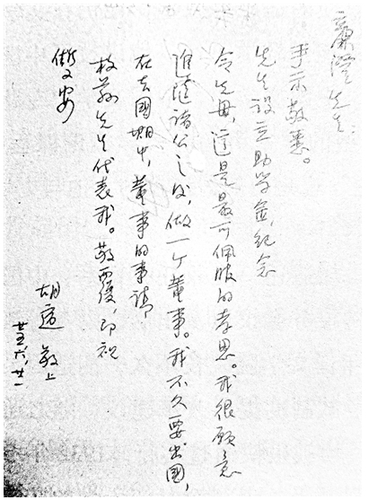 廉澄先生：
手示敬悉。
先生設互助学金，紀念
令先母，這是最可佩服的孝思。我很願意
追隨諸公之後，做一个董事。我不久要出國，
在去國期中，董事的事請
枚蓀先生代表我。敬復，即祝
安
胡適 敬上
廿五，六，廿一